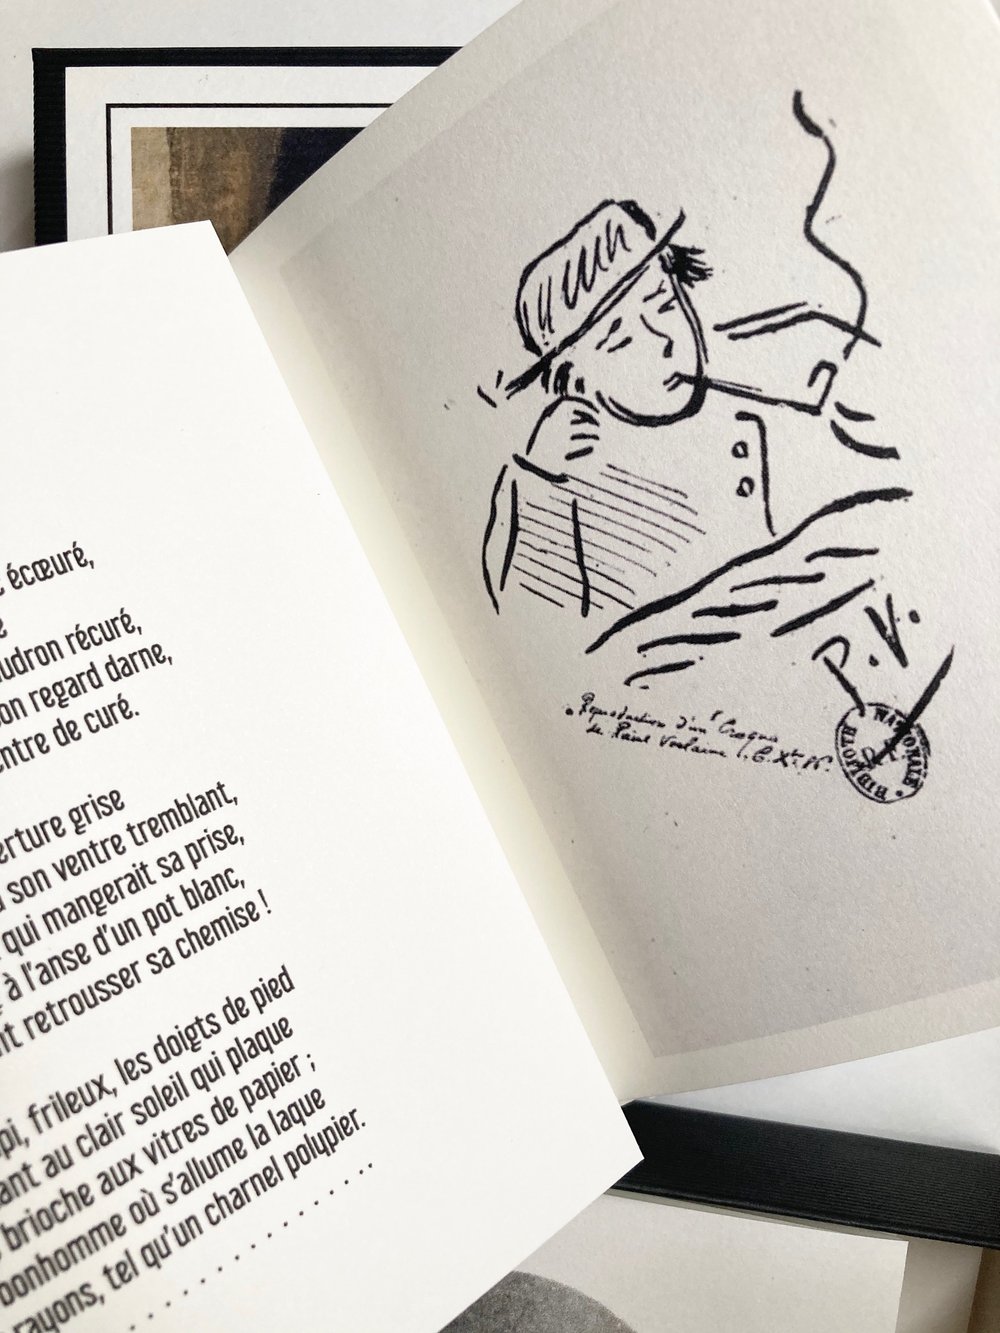 écœuré,
récuré,
regard darne,
de curé.
grise
son ventre tremblant,
qui mangerait sa prise,
à l'anse d'un pot blanc,
retrousser sa chemise !
frileux, les doigts de pied
au clair soleil qui plaque
brioche aux vitres de papier ;
bonhomme où s'allume la laque
rayons, tel qu'un charnel polypier.
. . . . . . . . . . . . . . . .
P.V.
Reproduction d'un Croquis
de Paul Verlaine
BIBLIOTH NATIONALE